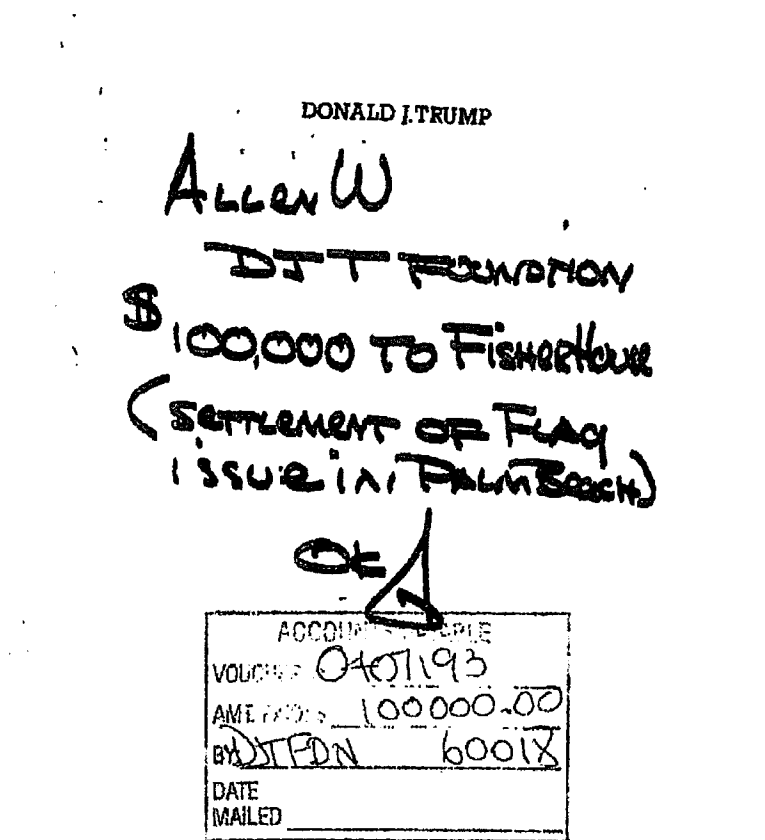 DONALD J. TRUMP
ALLEN W
DJT FOUNDATION
$100,000 TO FISHER HOUSE
(SETTLEMENT OF FLAG
ISSUE IN PALM BEACH)
OK
ACCOUNTS PAYABLE
VOUCHER 0407193
AMT 100000.00
BY DJTFDN 60018
DATE
MAILED